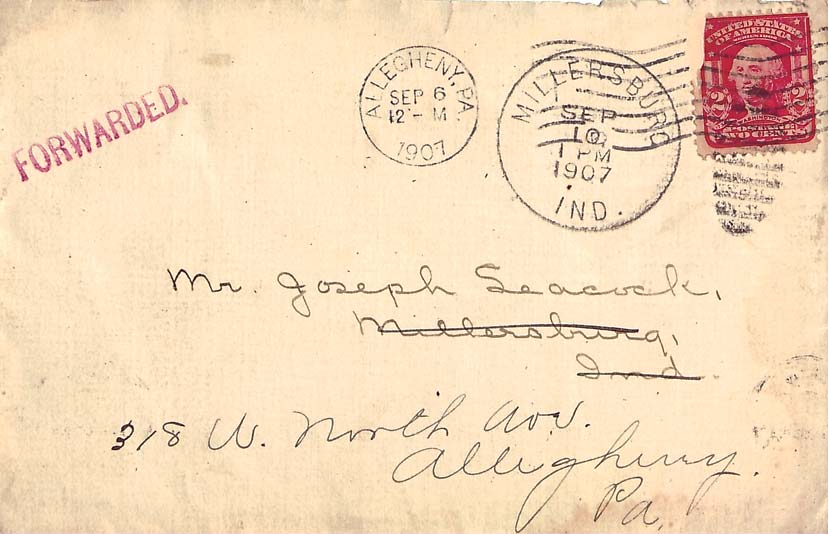 FORWARDED.
ALLEGHENY, PA.
SEP 6
12 - M
1907
MILLERSBURG
SEP
10
1 PM
1907
IND.
UNITED STATES
OF AMERICA
SERIES 1902
2 2
WASHINGTON
POSTAGE
TWO CENTS
Mr. Joseph Seacock,
Millersburg,
Ind.
318 W. North Ave.
Allegheny.
Pa.